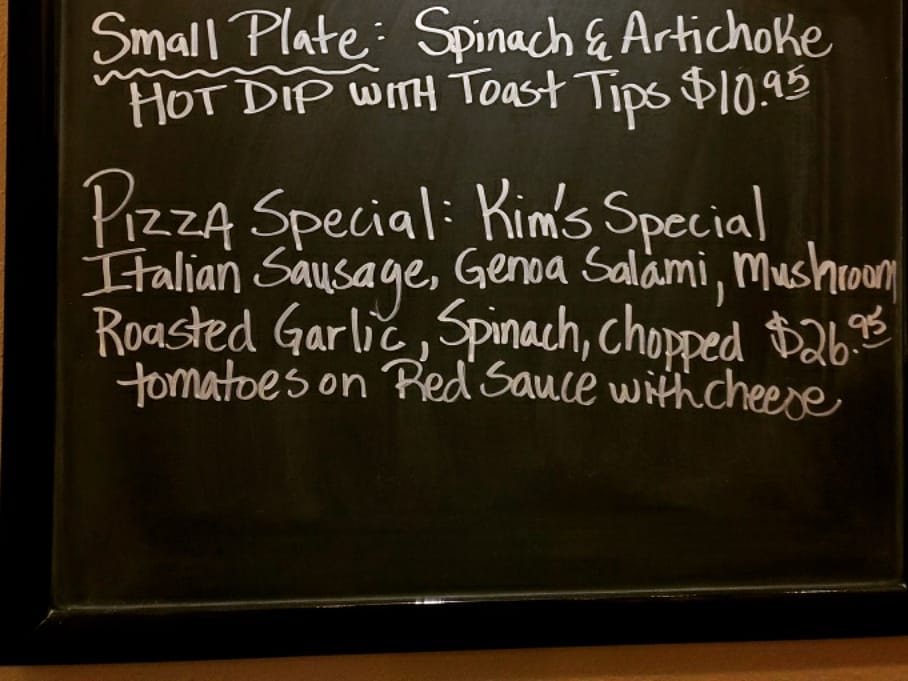 Small Plate: Spinach & Artichoke
HOT DIP WITH Toast Tips $10.95
PIZZA Special: Kim's Special
Italian Sausage, Genoa Salami, Mushroom
Roasted Garlic, Spinach, Chopped $26.95
tomatoes on Red Sauce with cheese